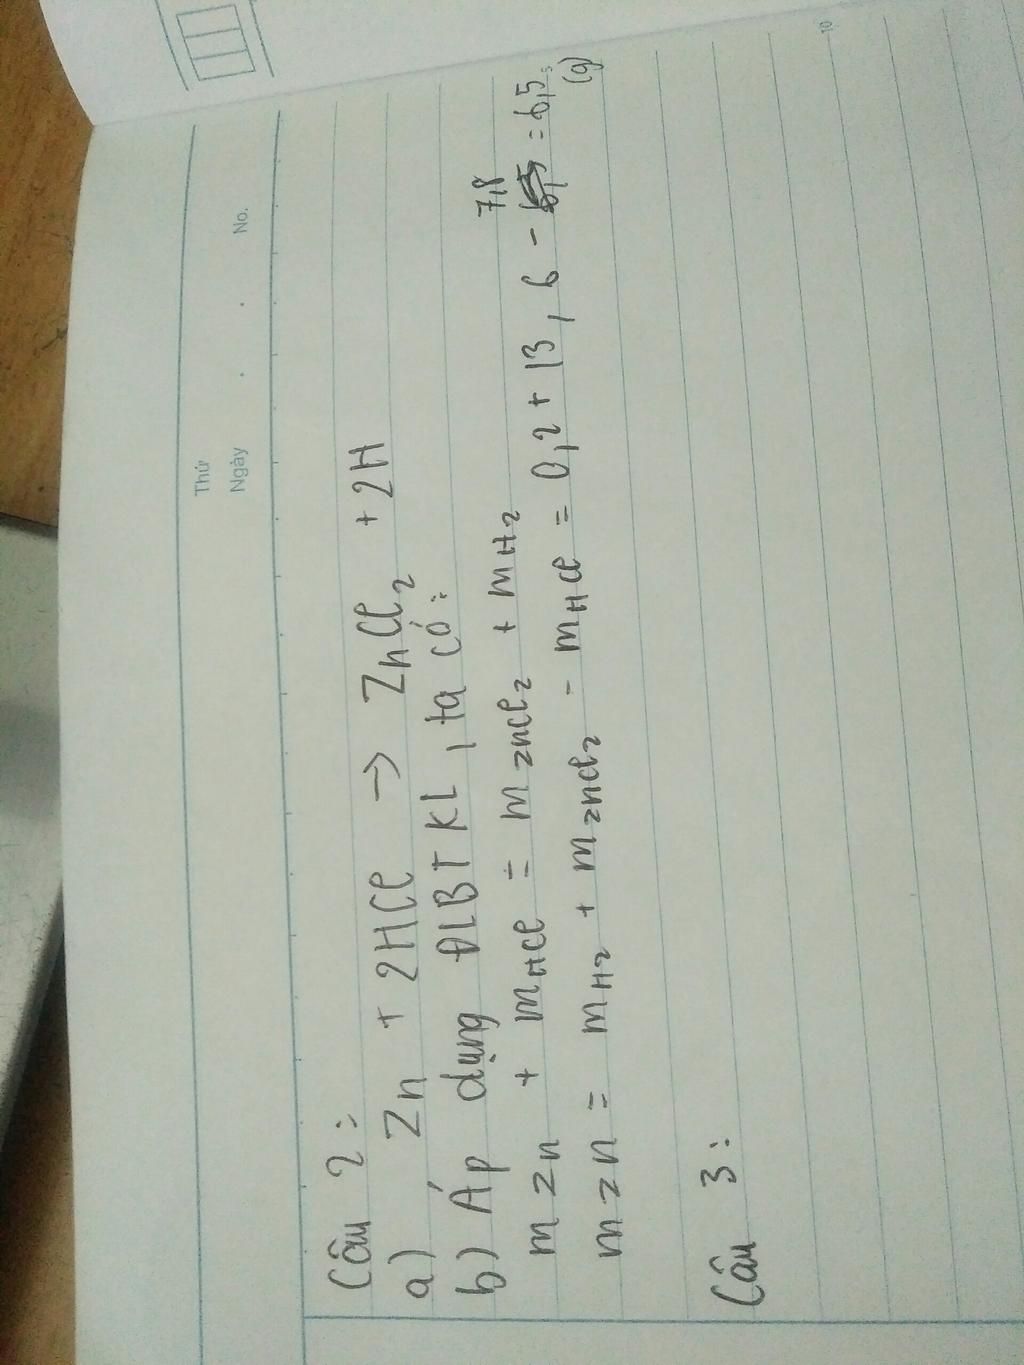 Thứ
Ngày . . No.
Câu 2:
a) Zn + 2HCl → ZnCl2 + 2H
b) Áp dụng ĐLBTKL, ta có:
mZn + mHCl = mZnCl2 + mH2
7,8
mZn = mH2 + mZnCl2 - mHCl = 0,2 + 13,6 - = 6,5
(g)
Câu 3:
10